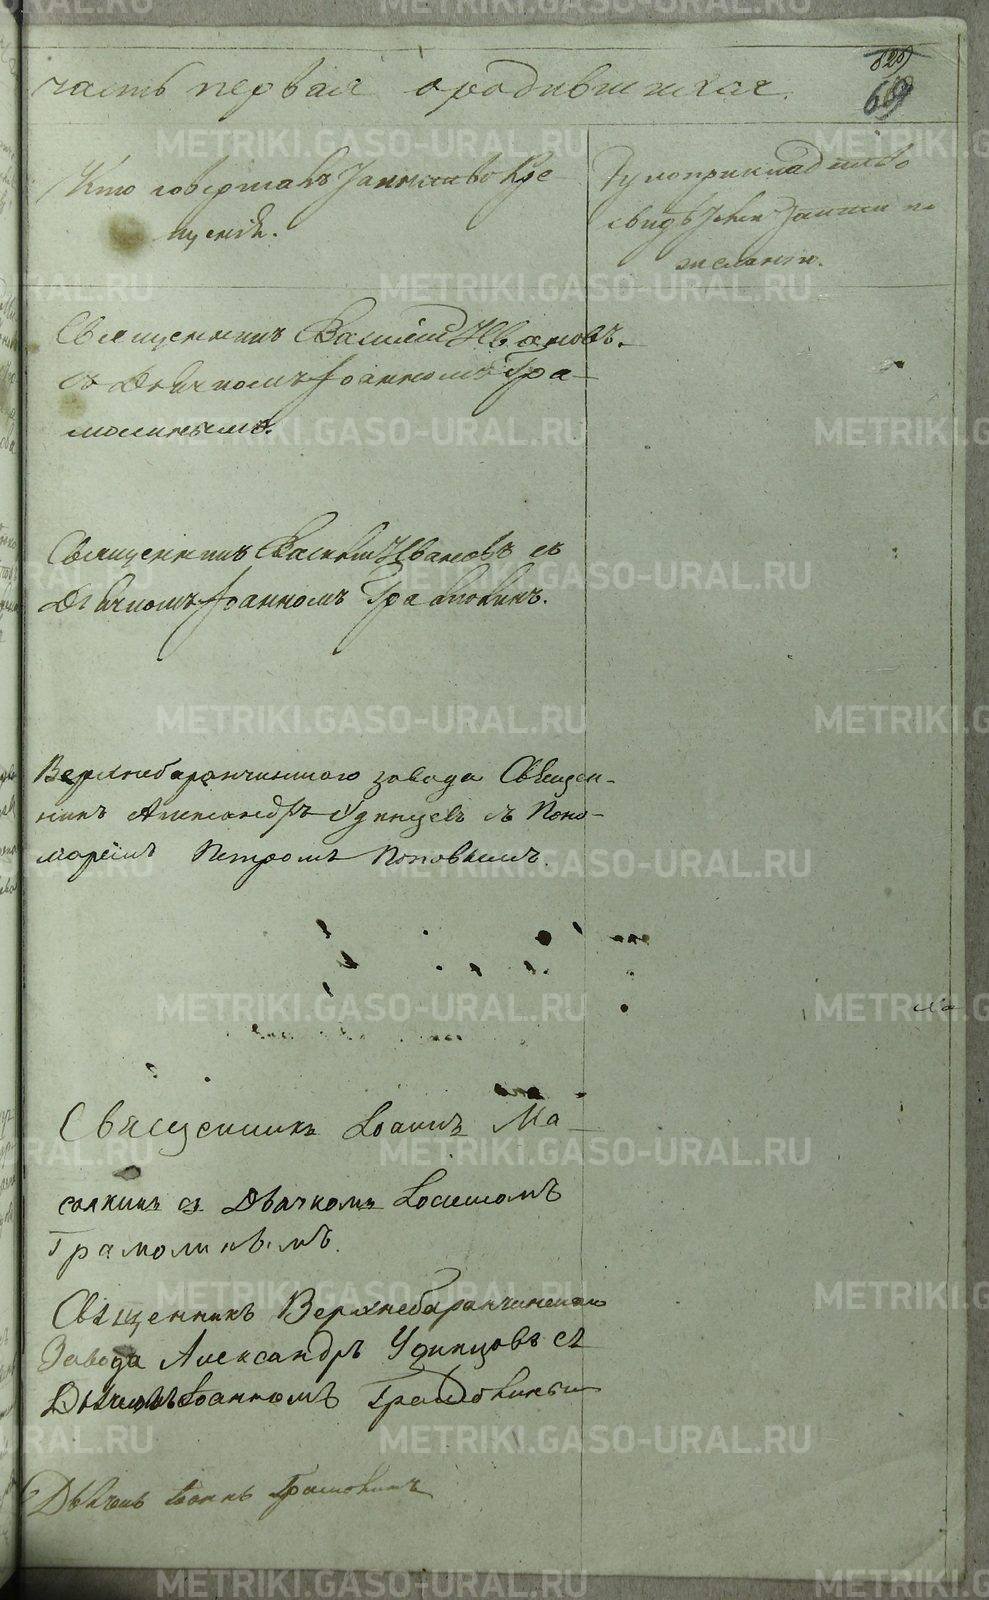 часть первая о родившихся.
69
Кто совершалъ Таинство Кре-
щенія.
Рукоприкладство
свидѣтелей записи по
желанію.
Священникъ Василій Ивановъ.
съ Дьячкомъ Іоанномъ Гра-
молинымъ.
Священникъ Василій Ивановъ съ
Дьячкомъ Іоанномъ
Верхнебаранчинскаго завода Священ-
никъ Александръ Удинцевъ съ Поно-
маремъ Петромъ Поповымъ.
Священникъ Іоаннъ Ма-
съ Дьячкомъ Іоанномъ
Грамолинымъ.
Священникъ Верхнебаранчинскаго
Завода Александръ Удинцовъ съ
Дьячкомъ Іоанномъ
Дьячекъ Іоаннъ